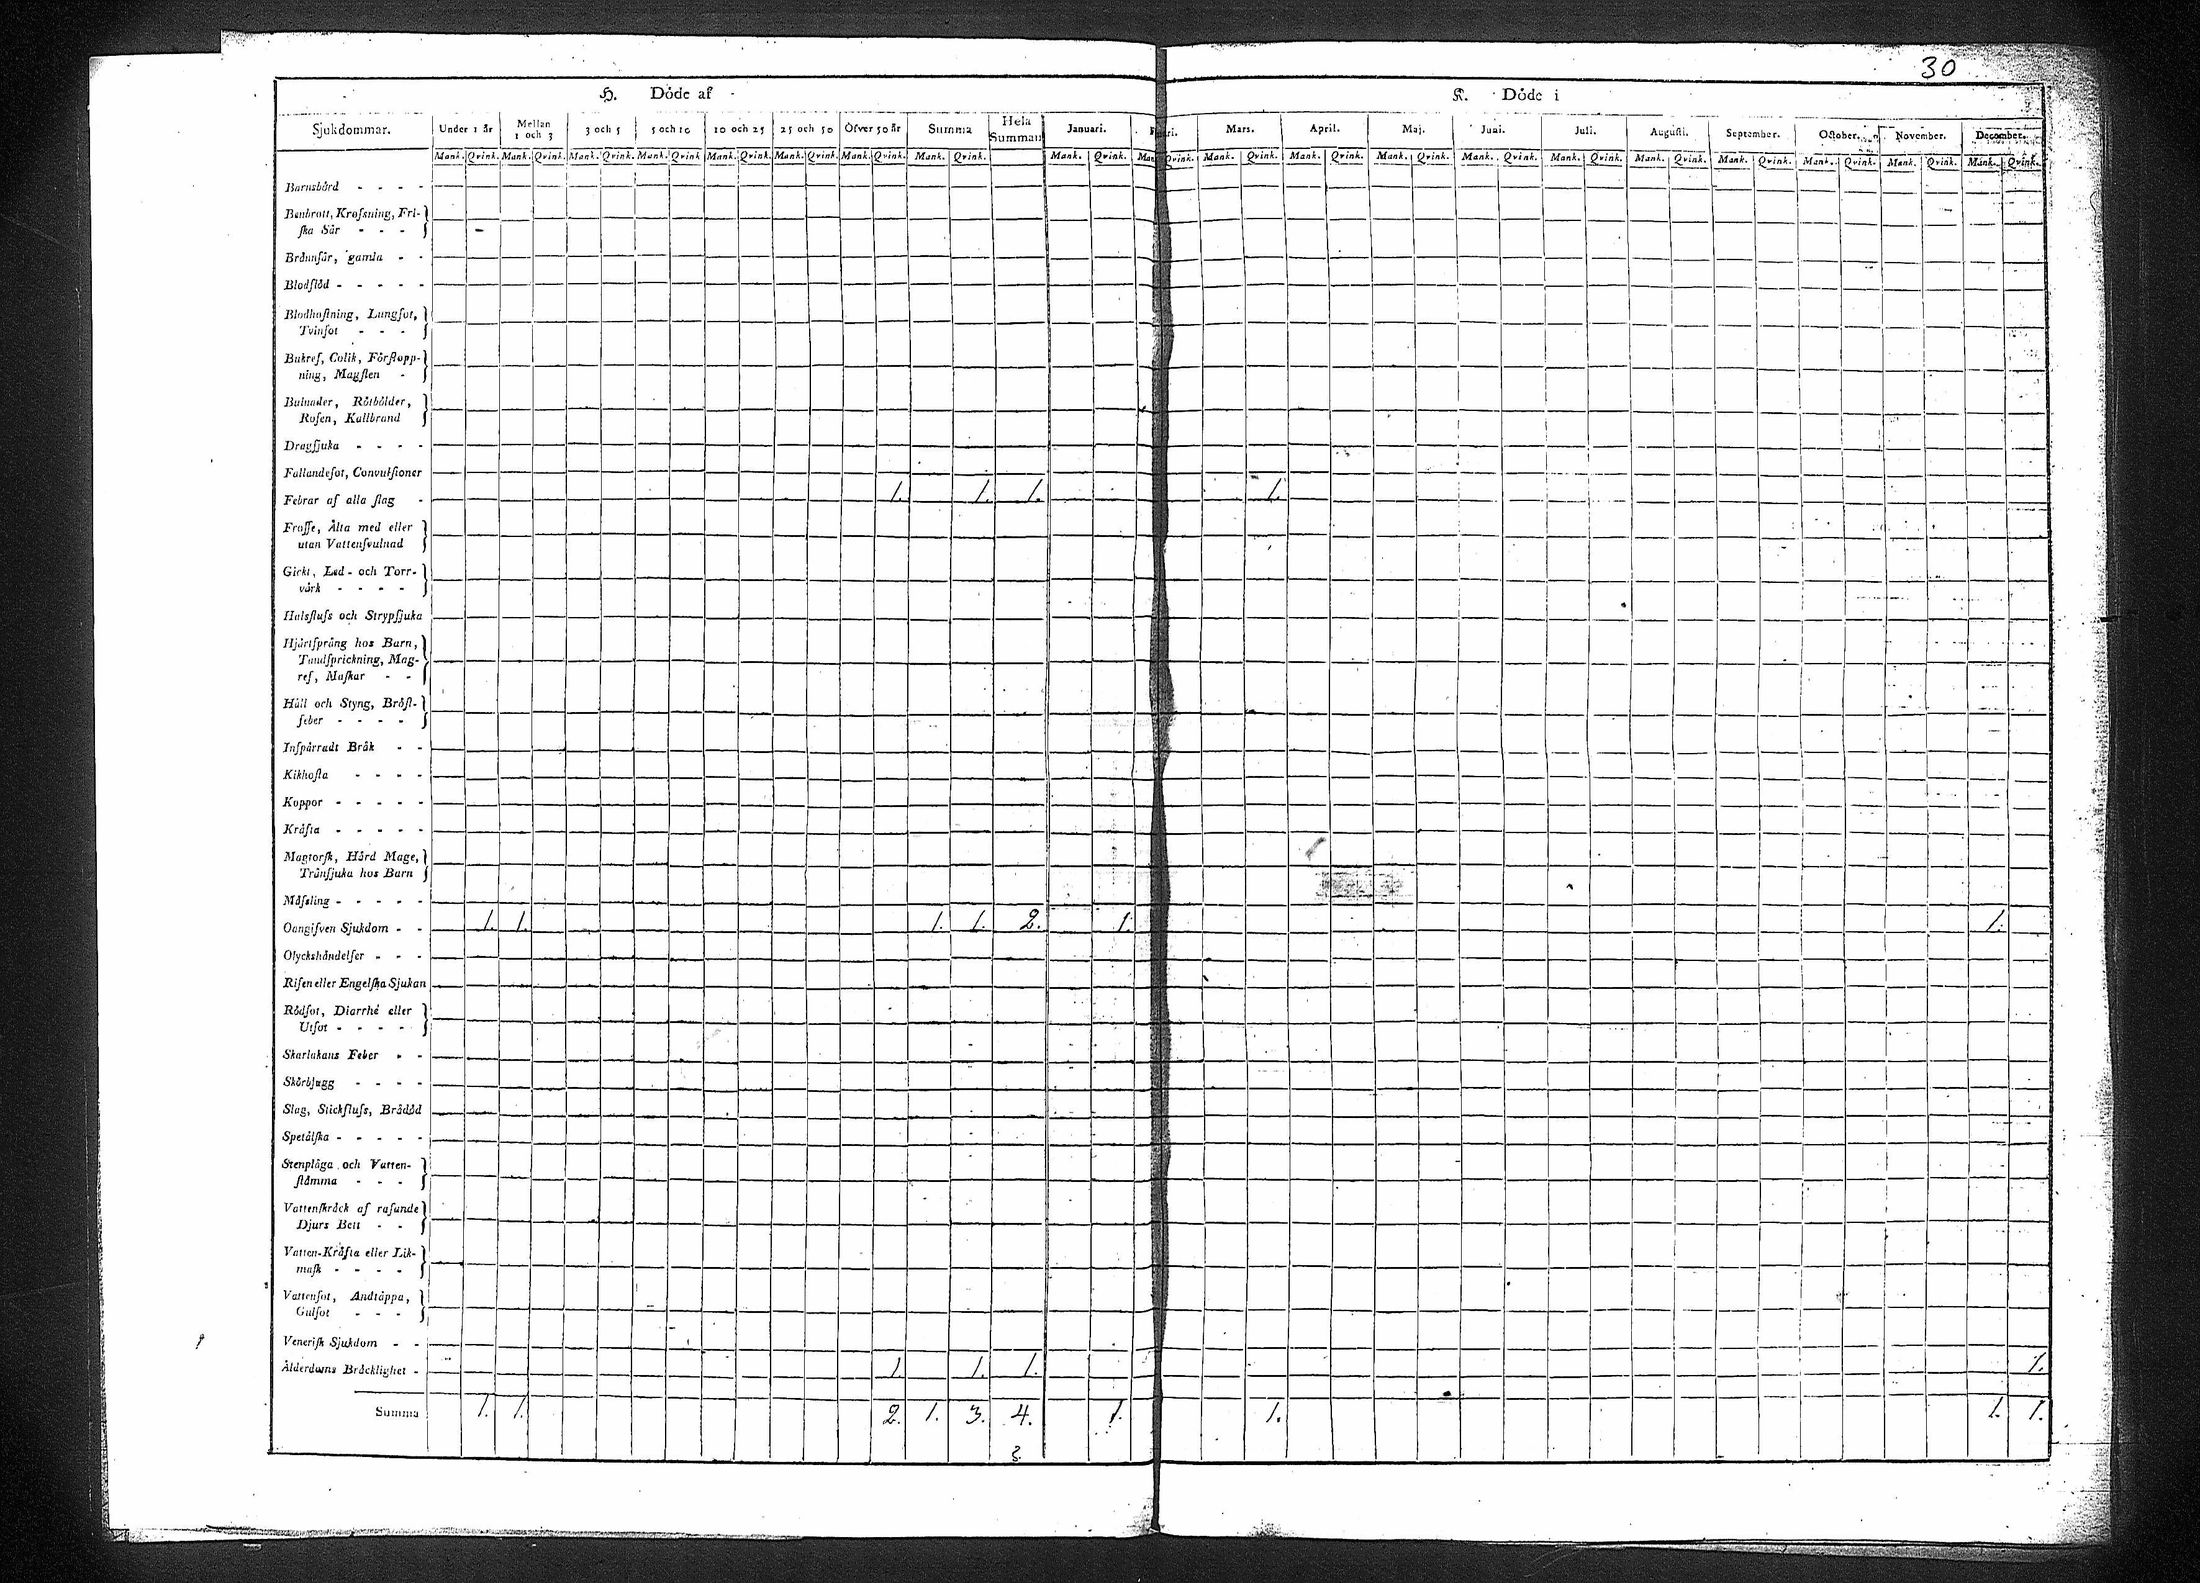 30
H. Döde af
K. Döde i
Sjukdommar. Under 1 år Mellan 1 och 3 3 och 5 5 och 10 10 och 25 25 och 50 Öfver 50 år Summa Hela Summan Januari. Mars. April. Maj. Juni. Juli. Augusti. September. October. November. December.
Mank. Qvink. Mank. Qvink. Mank. Qvink. Mank. Qvink Mank. Qvink. Mank. Qvink. Mank. Qvink. Mank. Qvink. Mank. Qvink. Qvink. Mank. Qvink. Mank. Qvink. Mank. Qvink. Mank. Qvink. Mank. Qvink. Mank. Qvink. Mank. Qvink. Mank. Qvink. Mank. Qvink. Mank. Qvink.
Barnsbörd - - - -
Benbrott, Krosning, Fri-
ska Sår - - -
Brännsår, gamla - -
Blodflöd - - - - -
Blodhostning, Lungsot,
Tvinsot - - -
Bukref, Colik, Förstopp-
ning, Magsten -
Bulnader, Rötbölder,
Rosen, Kallbrand
Dragsjuka - - - -
Fallandesot, Convulsioner
Febrar af alla slag - 1. 1. 1. 1.
Frosse, Älta med eller
utan Vattensvulnad
Gickt, Led- och Torr-
värk - - - -
Halsfluss och Strypsjuka
Hjärtsprång hos Barn,
Tandsprickning, Mag-
ref, Maskar - -
Håll och Styng, Bröst-
feber - - - -
Inspärradt Bråk - -
Kikhosta - - - -
Koppor - - - - -
Kräfta - - - - -
Magtorsk, Hård Mage,
Trånsjuka hos Barn
Mässling - - - - -
Oangifven Sjukdom - - 1. 1. 1. 1. 2. 1. 1.
Olyckshändelser - - -
Risen eller Engelska Sjukan
Rödsot, Diarrhé eller
Utsot - - - -
Skarlakans Feber - -
Skörbjugg - - - -
Slag, Stickfluss, Brådöd
Spetälska - - - - -
Stenplåga och Vatten-
stämma - - -
Vattenskräck af rasande
Djurs Bett - -
Vatten-Kräfta eller Lik-
mask - - - -
Vattensot, Andtäppa,
Gulsot - - -
Venerisk Sjukdom - -
Ålderdoms Bräcklighet - 1. 1. 1. 1.
Summa 1. 1. 2. 1. 3. 4. 1. 1. 1. 1.
3.